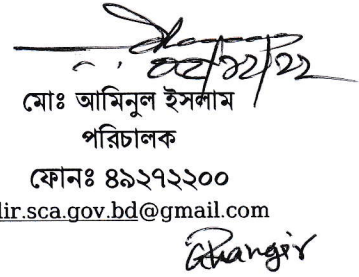 ০৫/১২/২২
মোঃ আমিনুল ইসলাম
পরিচালক
ফোনঃ ৪৯২৭২২০০
dir.sca.gov.bd@gmail.com